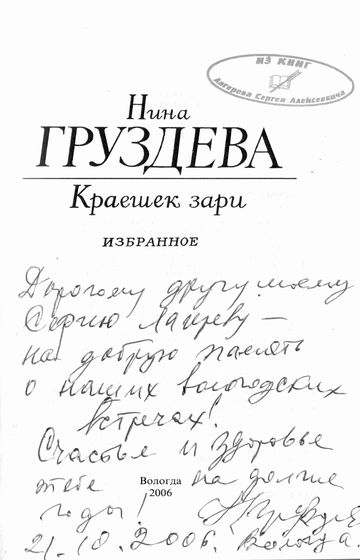 ИЗ КНИГ
Лагерева Сергея Алексеевича
Нина
ГРУЗДЕВА
Краешек зари
ИЗБРАННОЕ
Дорогому другу моему
Сергею Лагереву —
на добрую память
о наших вологодских
встречах!
Счастье и здоровье
тебе на долгие
годы!
Вологда
2006
21.10.2006. Вологда